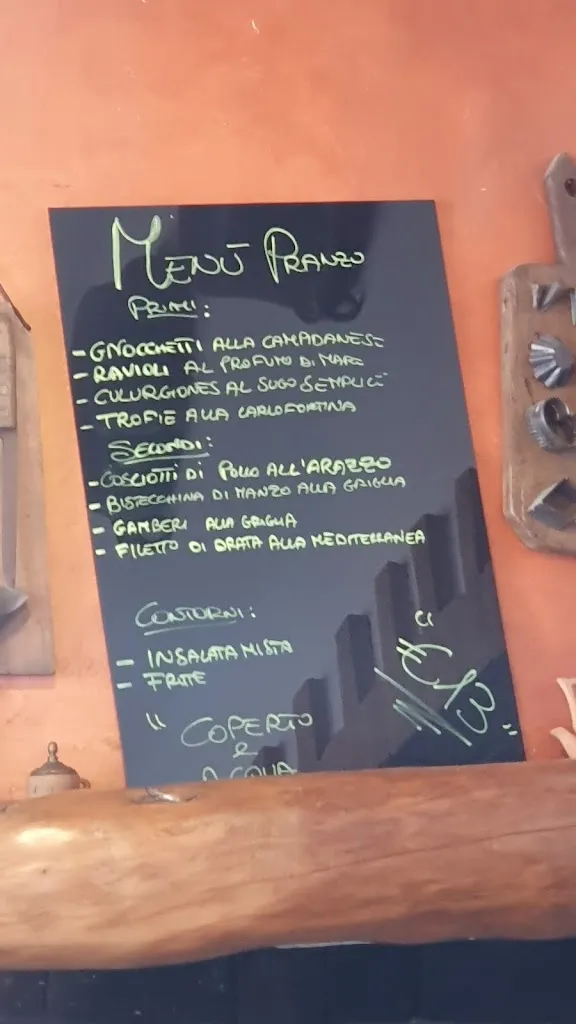 MENÙ PRANZO
PRIMI:
- GNOCCHETTI ALLA CAMPIDANESE
- RAVIOLI AL PROFUMO DI MARE
- CULURGIONES AL SUGO SEMPLICE
- TROFIE ALLA CARLOFORTINA
SECONDI:
- COSCIOTTI DI POLLO ALL'ARAZZO
- BISTECCHINA DI MANZO ALLA GRIGLIA
- GAMBERI ALLA GRIGLIA
- FILETTO DI ORATA ALLA MEDITERRANEA
CONTORNI:
- INSALATA MISTA
- FRITTE
" COPERTO
e
ACQUA
" €13 "